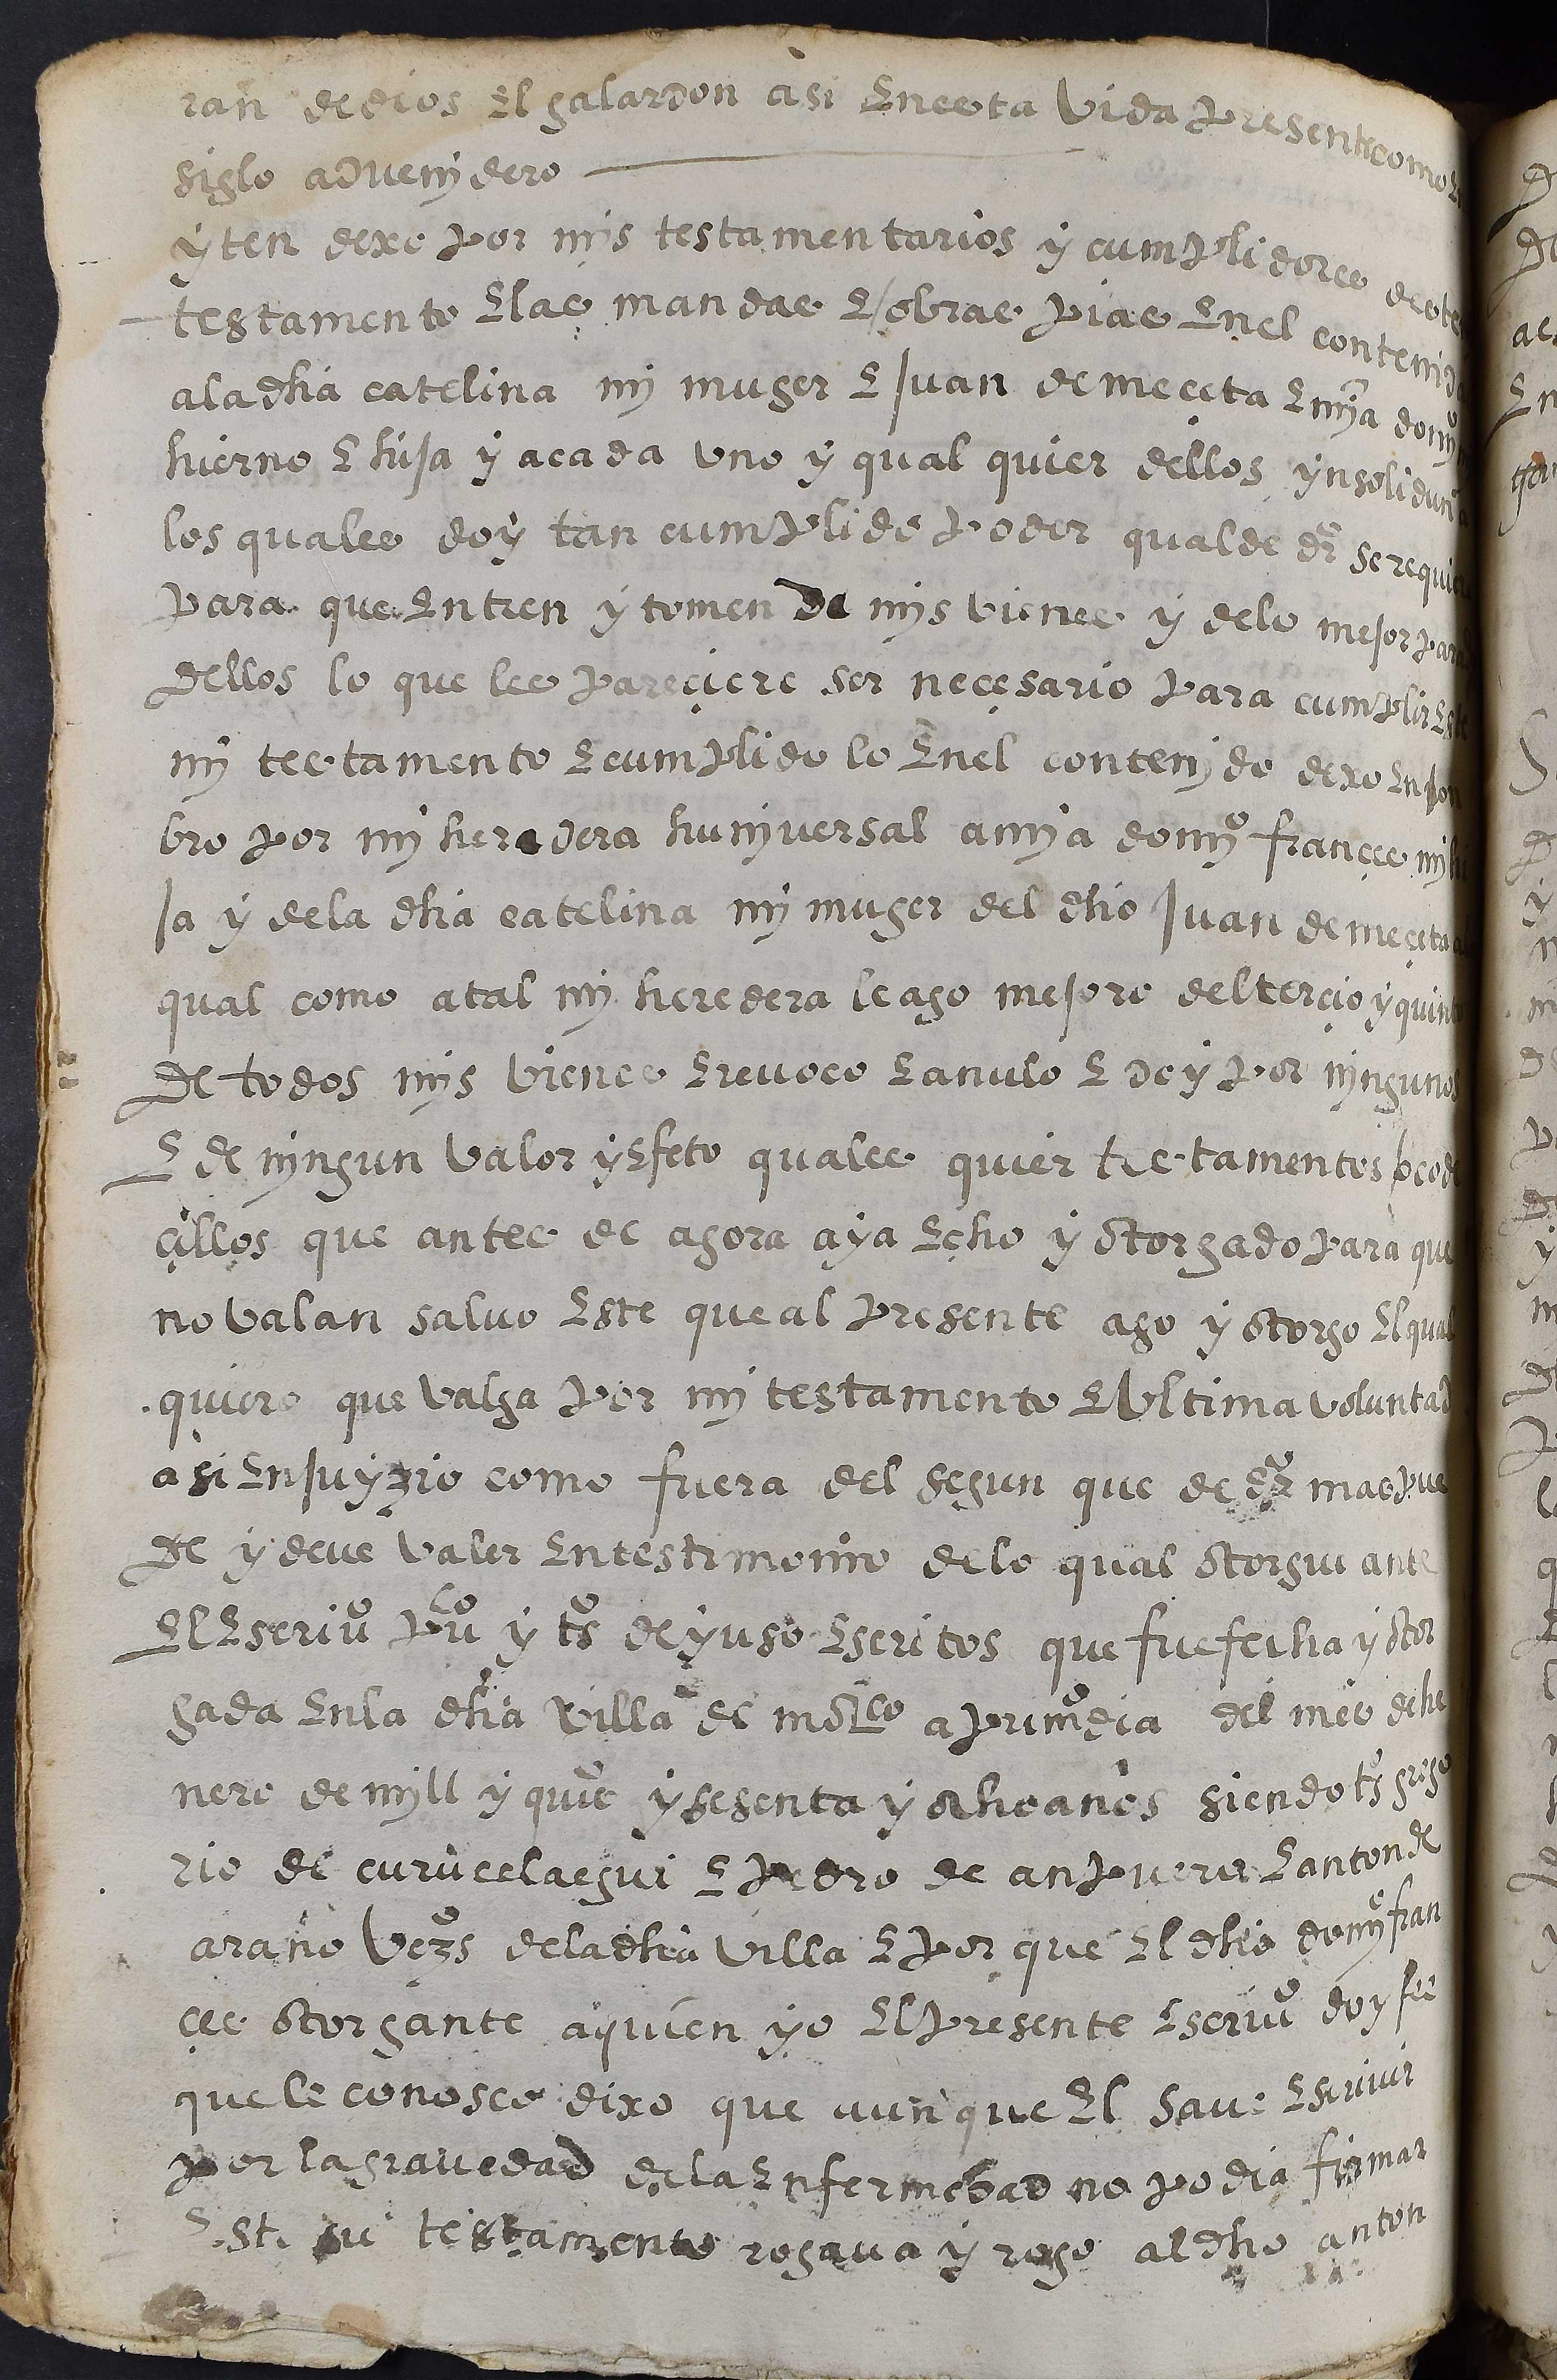 ran de dios el galardon asi en esta vida presente como en
siglo advenydero
yten dexo por mys testamentarios y cumplidores deste
testamento e las mandas e obras pias en el contenidas
a la dha catelina my muger e Juan de meçeta e mya domyo
hierno e hija y a cada uno y qual quier dellos ynsolidun a
los quales doy tan cumplido poder qual de dro se requiere
para que entren y tomen de mys vienes y de lo mejor parado
dellos lo que les pareçiere ser neçesario para cumplir este
my testamento e cumplido lo en el contenydo dexo e nson
bro por my heradera hunyversal a mya domyo françes my hi
ja y de la dha catelina my muger del dho Juan de meçeta al
qual como a tal my heredera le ago mejoro del terçio y quinto
de todos mys vienes e revoco e anulo e doy por nyngunos
e de nyngun valor y efeto quales quier testamentos o code
çillos que antes de agora aya echo y otorgado para que
no valan salvo este que al presente ago y otorgo el qual
quiero que valga por my testamento e ultima voluntad
asi en juyzio como fuera del segun que de dro mas pue
de y deve valer en testimonio de lo qual otorgui ante
el escrivo puco y tos de yuso escritos que fue fecha y otor
gada en la dha villa de
a primo dia del mes de he
nero de myll y quis y sesenta y ocho años siendo ts grego
rio de curucelaegui e pedro de anpuero e anton de
araño vezos de la dha villa e por que el dho domyo fran
çes otorgante a quien yo el presente escrivo doy fee
que le conosco dixo que aunque el save escrivir
por la gravedad de la enfermedad no podia firmar
este su testamento rogava y rogo al dho anton